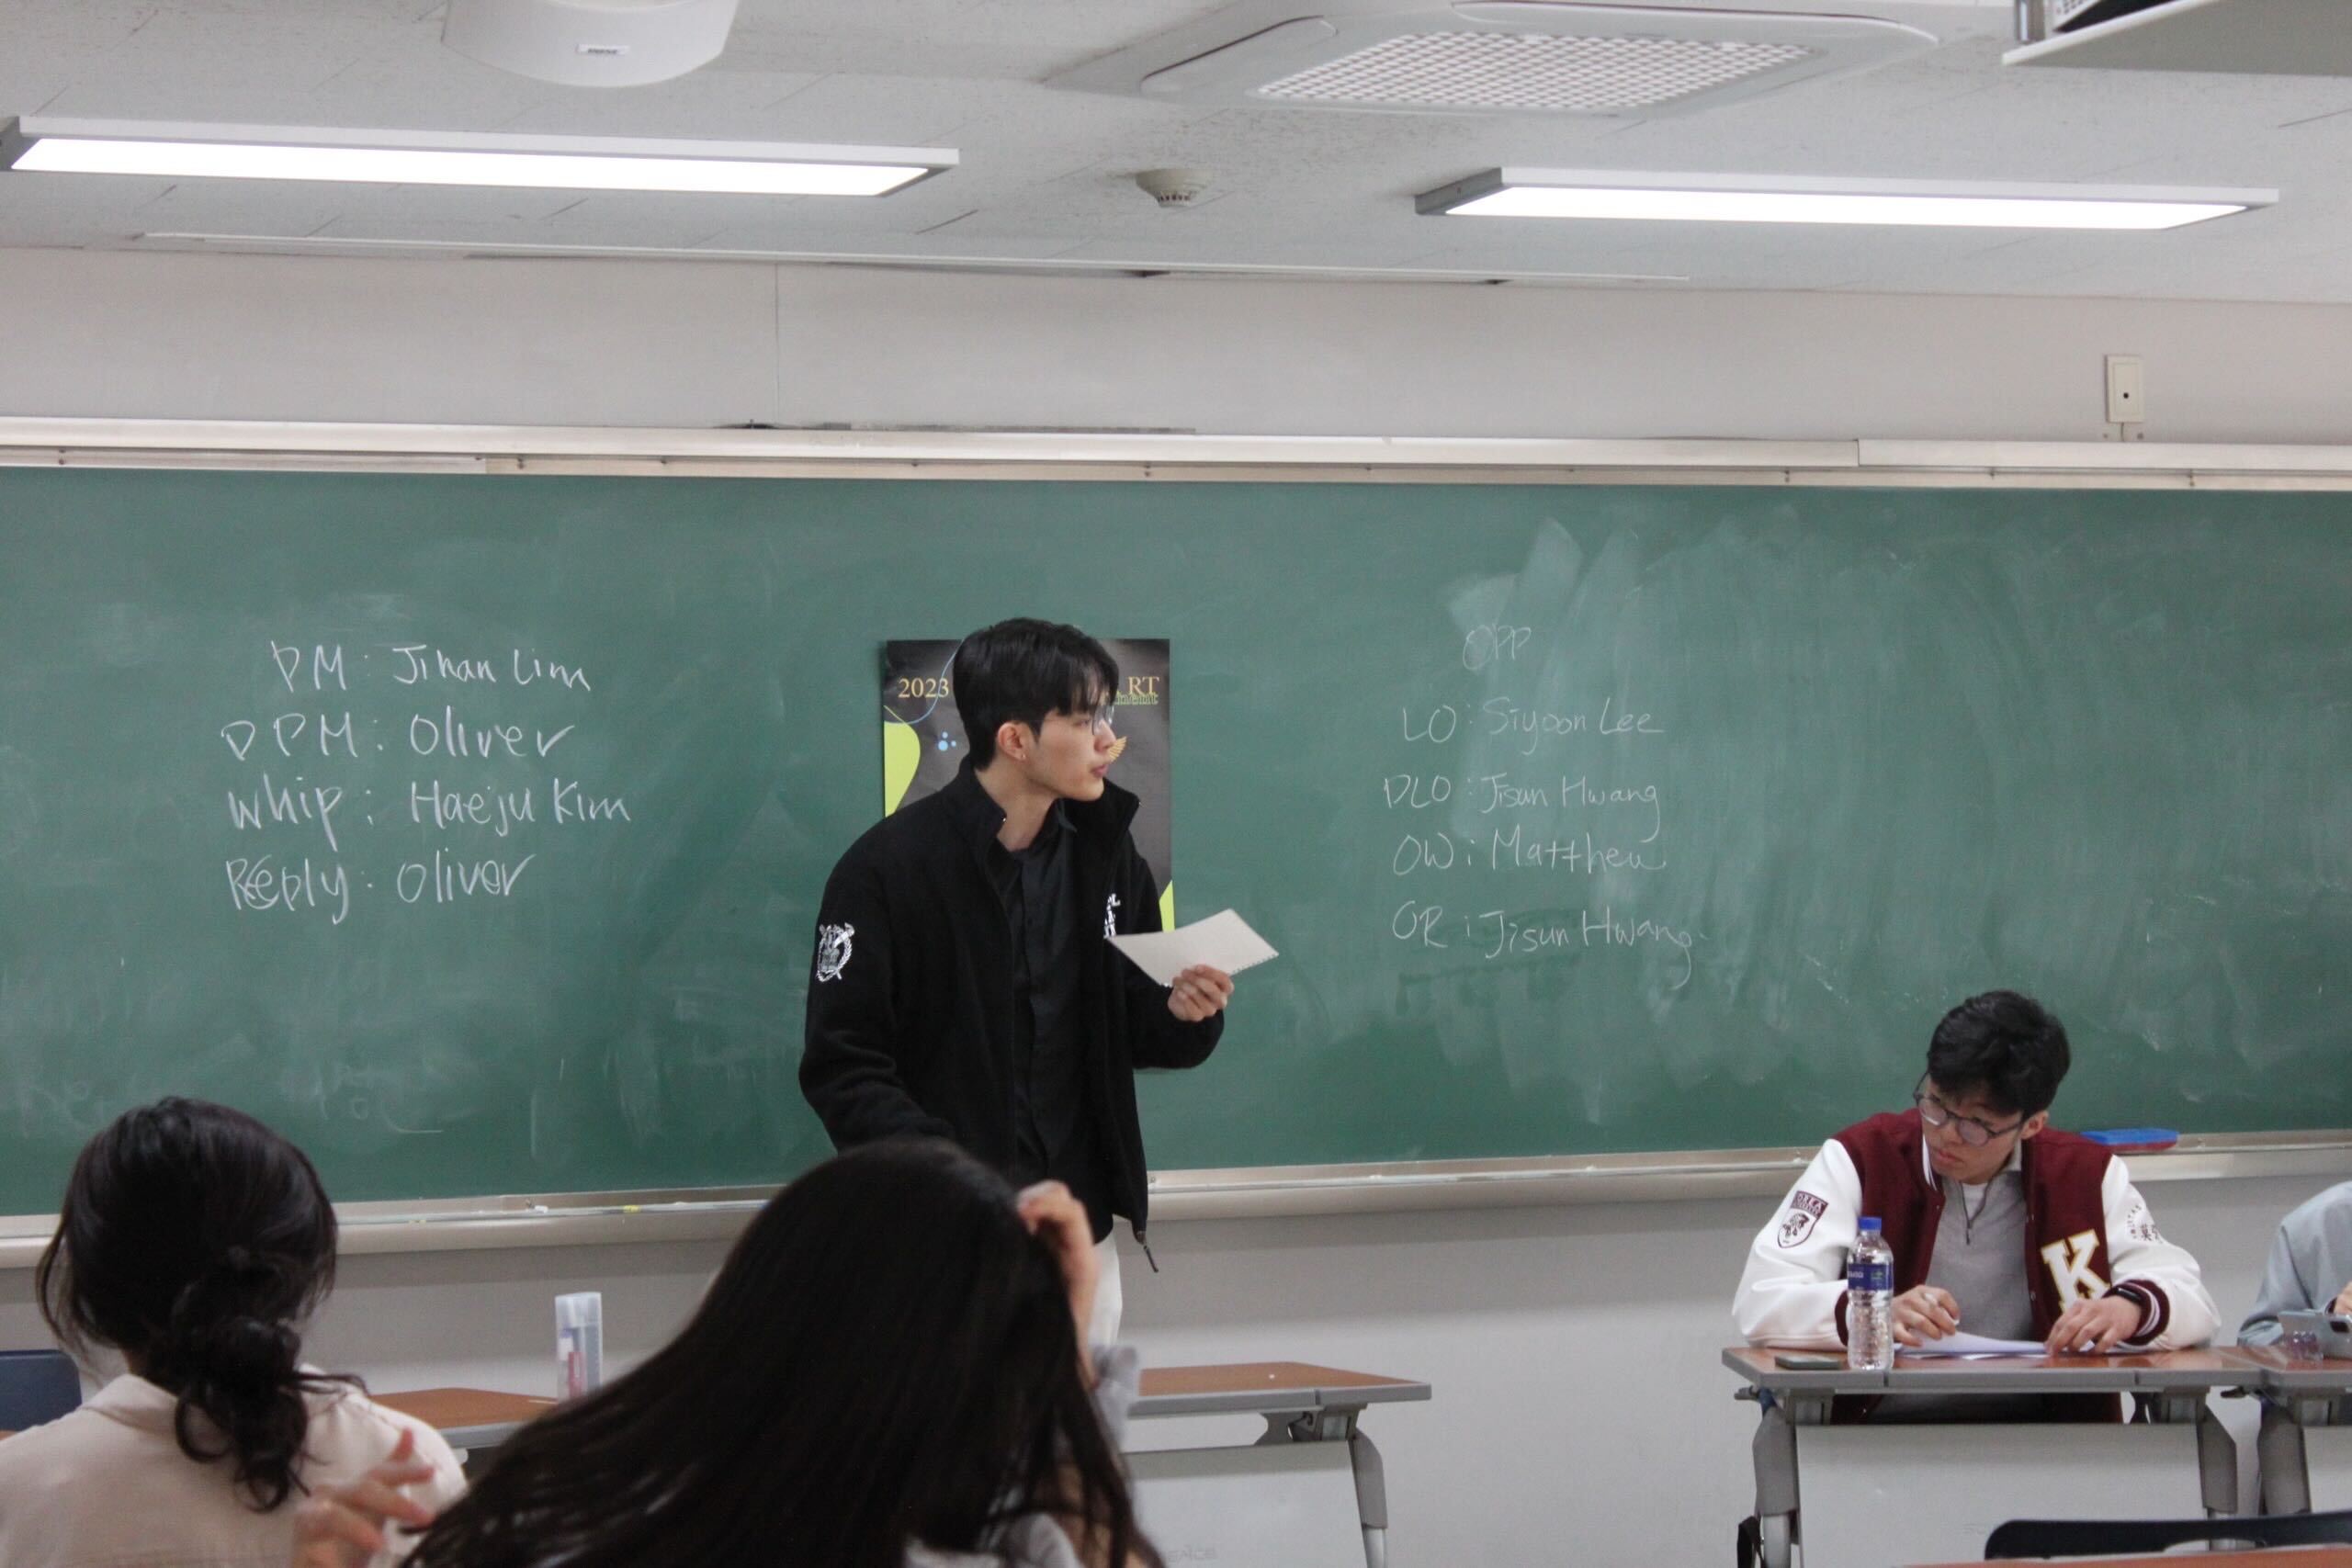 PM: Jihan Lim
DPM: Oliver
Whip: Haeju Kim
Reply: Oliver
2023
RT
OPP
LO: Siyoon Lee
DLO: Jisun Hwang
OW: Matthew
OR: Jisun Hwang
K